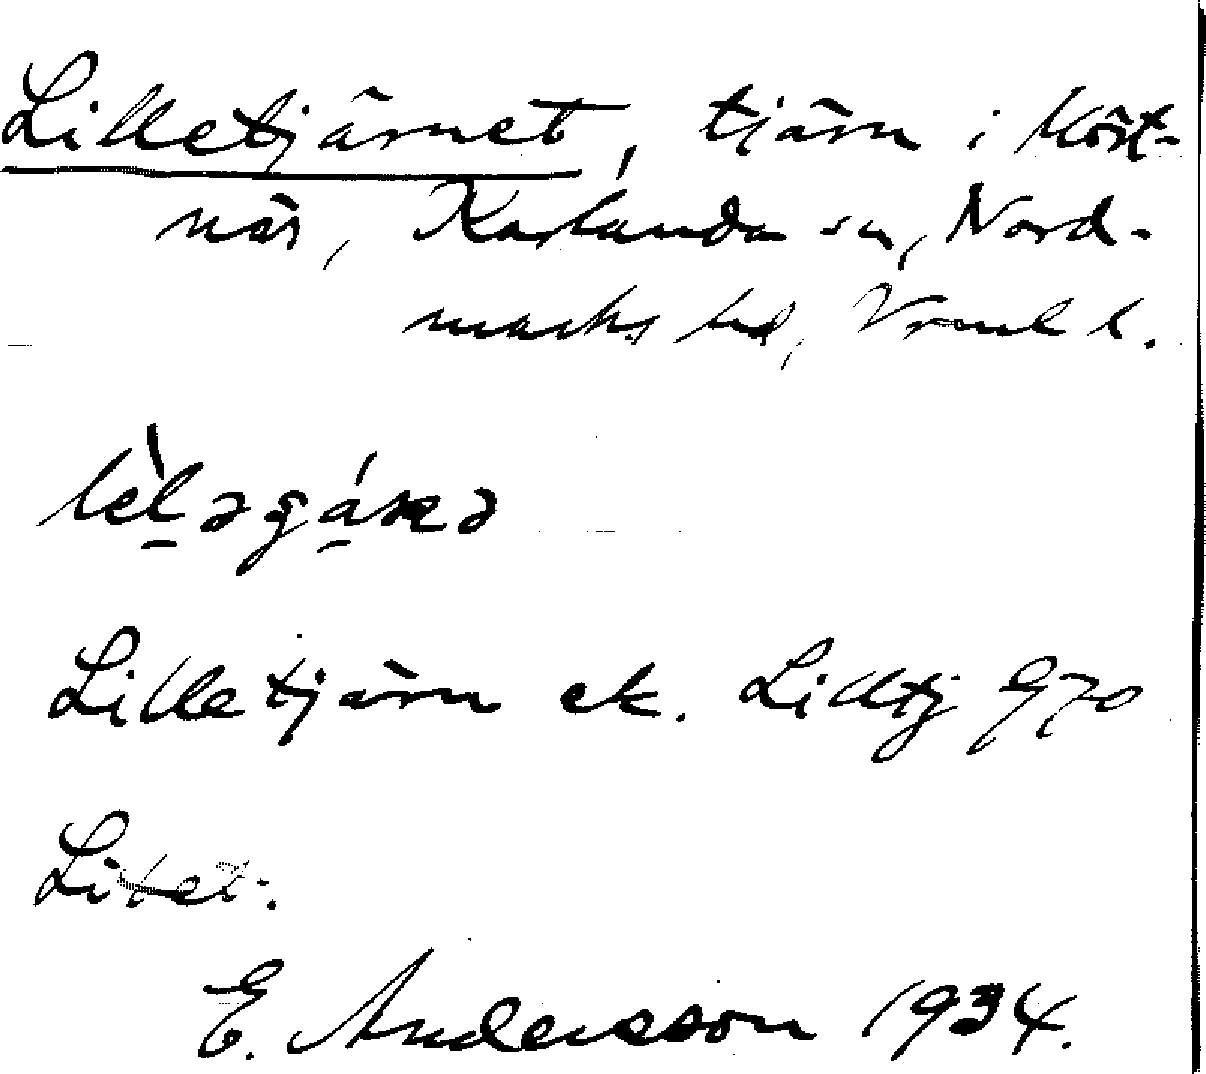 Lilletjärnet, tjärn i Köst-
när, Karlanda sn, Nord-
marks hd, Vrml l.
Lilletjärn ek. Lilltj 970
Litet.
E. Andersson 1934.